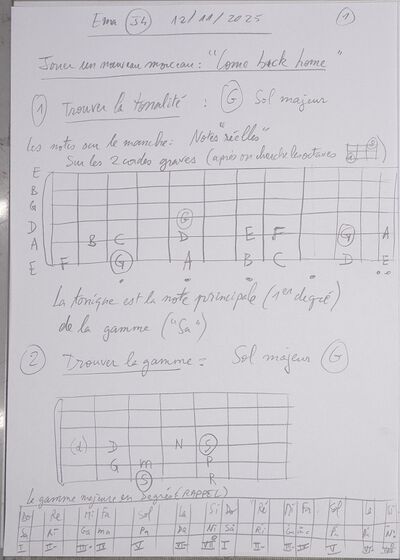 Ema 34 12/11/2025 1
Jouer un nouveau morceau: "Come back home"
1 Trouver la tonalité : G Sol majeur
Les notes sur le manche: Notes "réelles"
Sur les 2 cordes graves (après on cherche les octaves
E
B
G
D G
A B C D E F G A
E F G A B C D E
La tonique est la note principale (1er degré)
de la gamme ("Sa")
2 Trouver la gamme = Sol majeur G
(d) D N S
G m P
S R
La gamme majeure en degrés (RAPPEL)
Do Ré Mi Fa Sol La Si Do Ré Mi Fa Sol La Si
Sa Ri Ga ma Pa Da Ni Sa Ri Ga ma Pa Da Ni